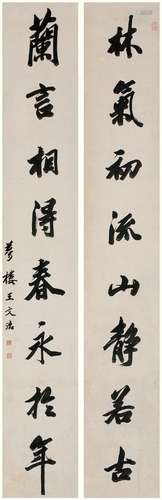 林氣初流山靜若古
蘭言相得春永於年
夢樓王文治